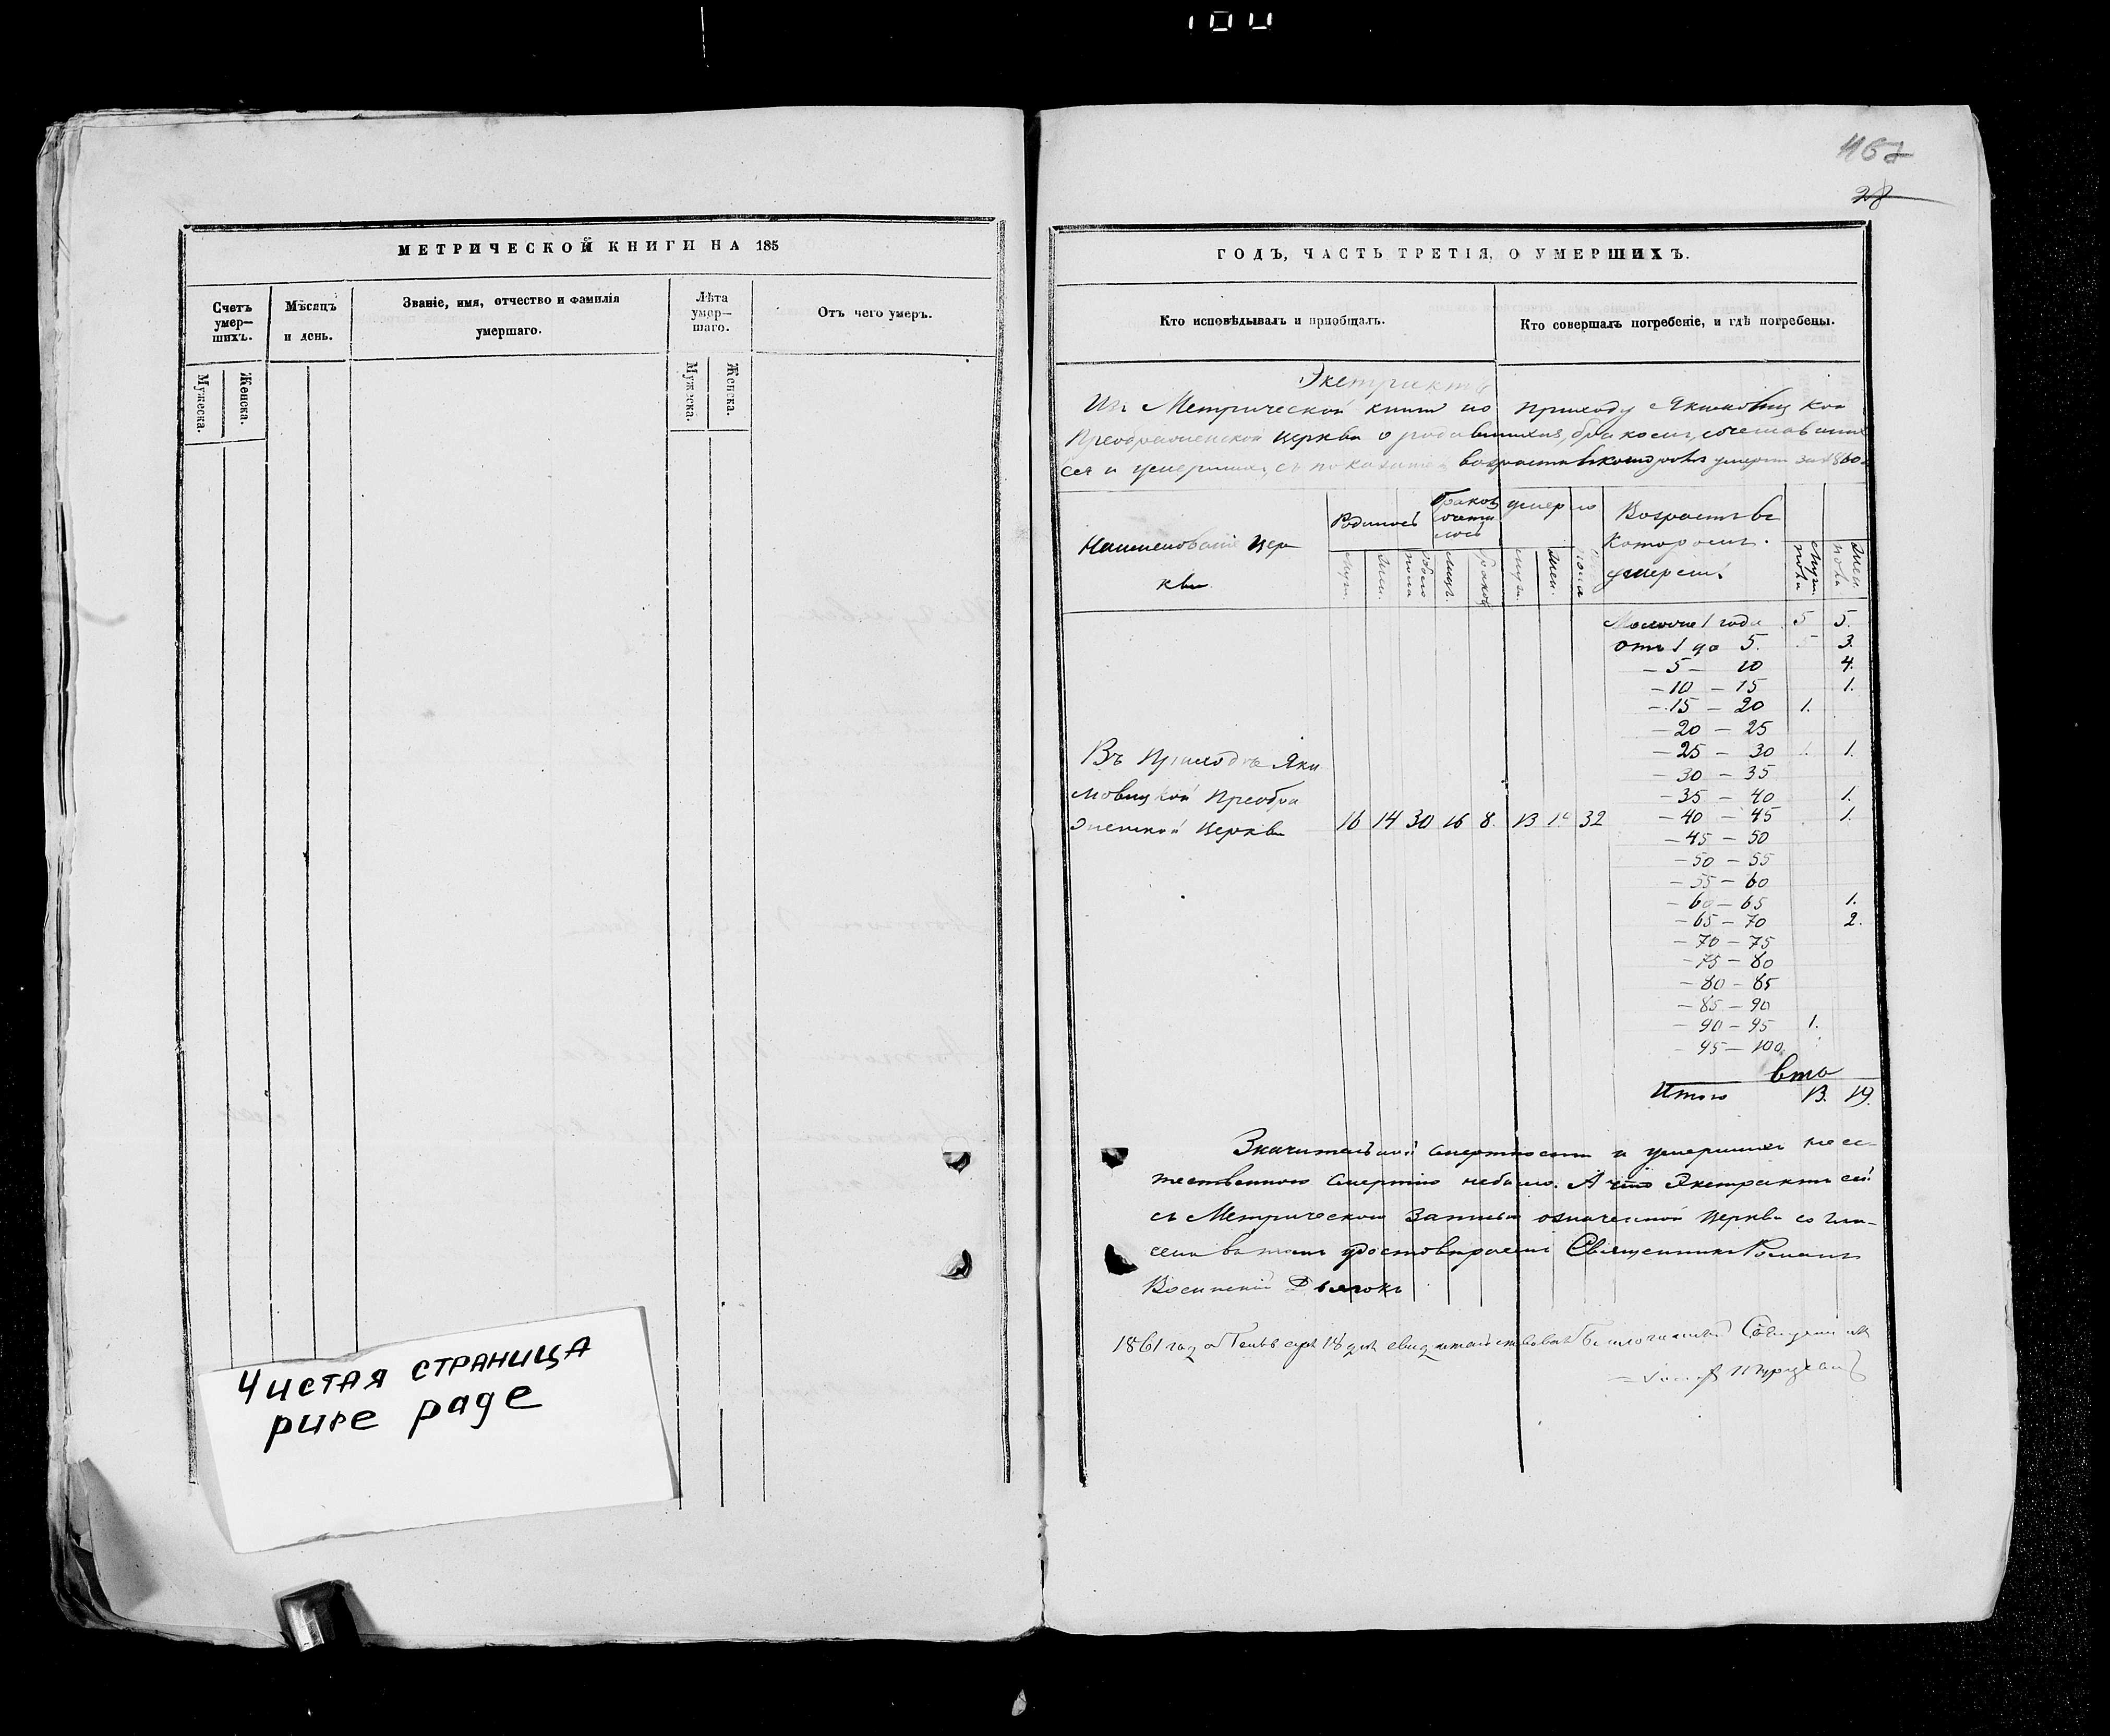 100
МЕТРИЧЕСКОЙ КНИГИ НА 185
Счетъ умер— шихъ.
Мѣсяцъ и день.
Званіе, имя, отчество и фамилія умершаго.
Лѣта умер— шаго.
Отъ чего умеръ.
Мужеска.
Женска.
Мужеска.
Женска.
Чистая страница
pure page
467
28
ГОДЪ, ЧАСТЬ ТРЕТІЯ, О УМЕРШИХЪ.
Кто исповѣдывалъ и пріобщалъ.
Кто совершалъ погребеніе, и гдѣ погребены.
Экстрактъ
Изъ Метрической книги по приходу Якимовицкой
Преображенской Церкви о родившихся, бракомъ сочетавших
ся и умершихъ, съ показаніемъ возраста въ которомъ умерли за 1860
Наименованіе Цер
кви
Родилось
браковъ сочета лось
умерло
Возрастъ въ
которомъ
умерли
муж.
жен.
обоего пола
лицъ.
браковъ
муж.
жен.
пола
муж. пола
жен. пола
Моложе 1 года 5 5.
отъ 1 до 5. 5 3.
— 5 — 10 4.
— 10 — 15 1.
— 15 — 20 1.
— 20 — 25
— 25 — 30 1. 1.
— 30 — 35
— 35 — 40 1.
— 40 — 45 1.
— 45 — 50
— 50 — 55
— 55 — 60
— 60 — 65 1.
— 65 — 70 2.
— 70 — 75
— 75 — 80
— 80 — 85
— 85 — 90
— 90 — 95 1.
— 95 — 100
Въ Приходѣ Яки
мовицкой Преобра
женской Церкви 16 14 30 16 8. 13 19 32
Итого 13. 19.
Значительной смертности и умершихъ неес-
тественною смертію небыло. А что Экстрактъ сей
съ Метрическою Записью означенной Церкви согла-
сенъ въ томъ удостовѣряемъ Священникъ Романъ
Дьячокъ
1861 года Генваря 18 дня свидетельствовалъ Благочинный Священникъ